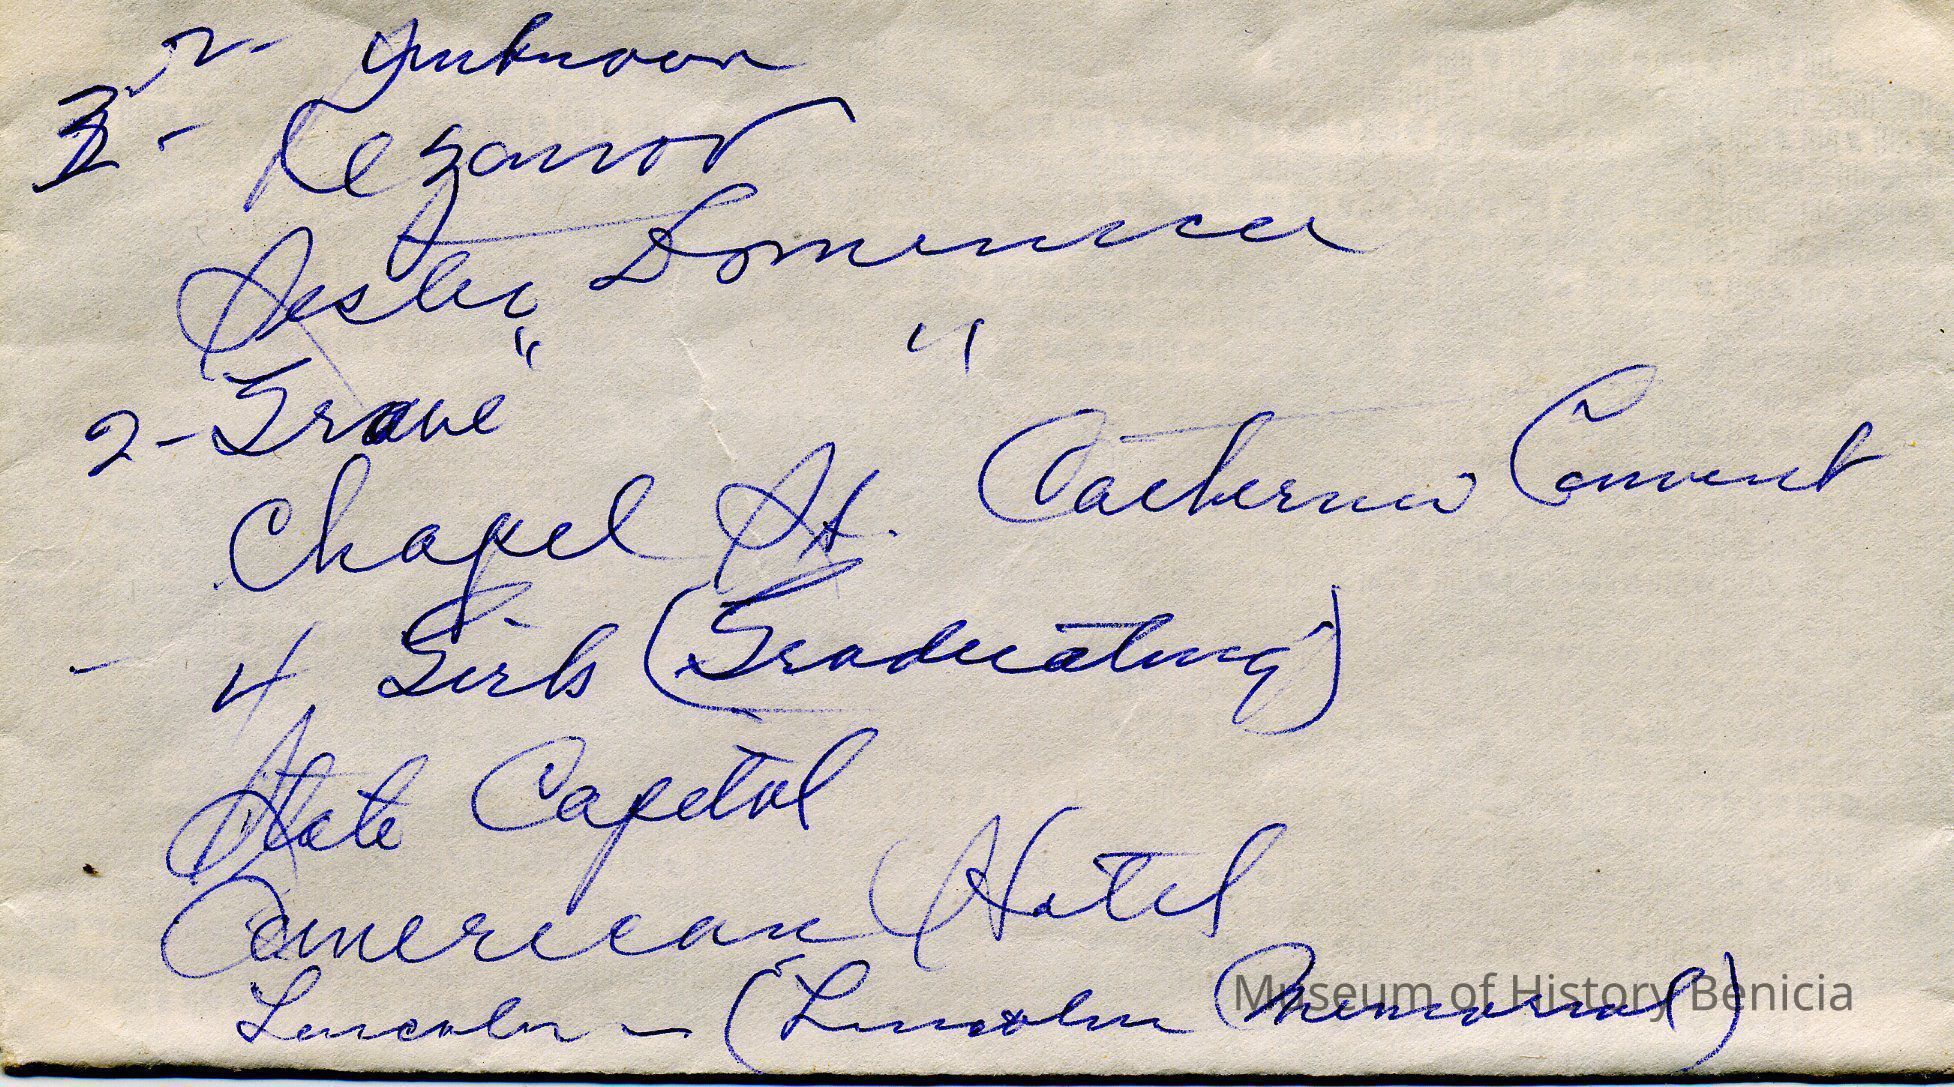 2- Unknown
3 - Rezanov
Sister Dominica
" "
2- Grave
Chapel St. Catherine Convent
- 4 Girls (Graduating)
State Capitol
American Hotel
Lincoln - (Lincoln Memorial)
Museum of History Benicia